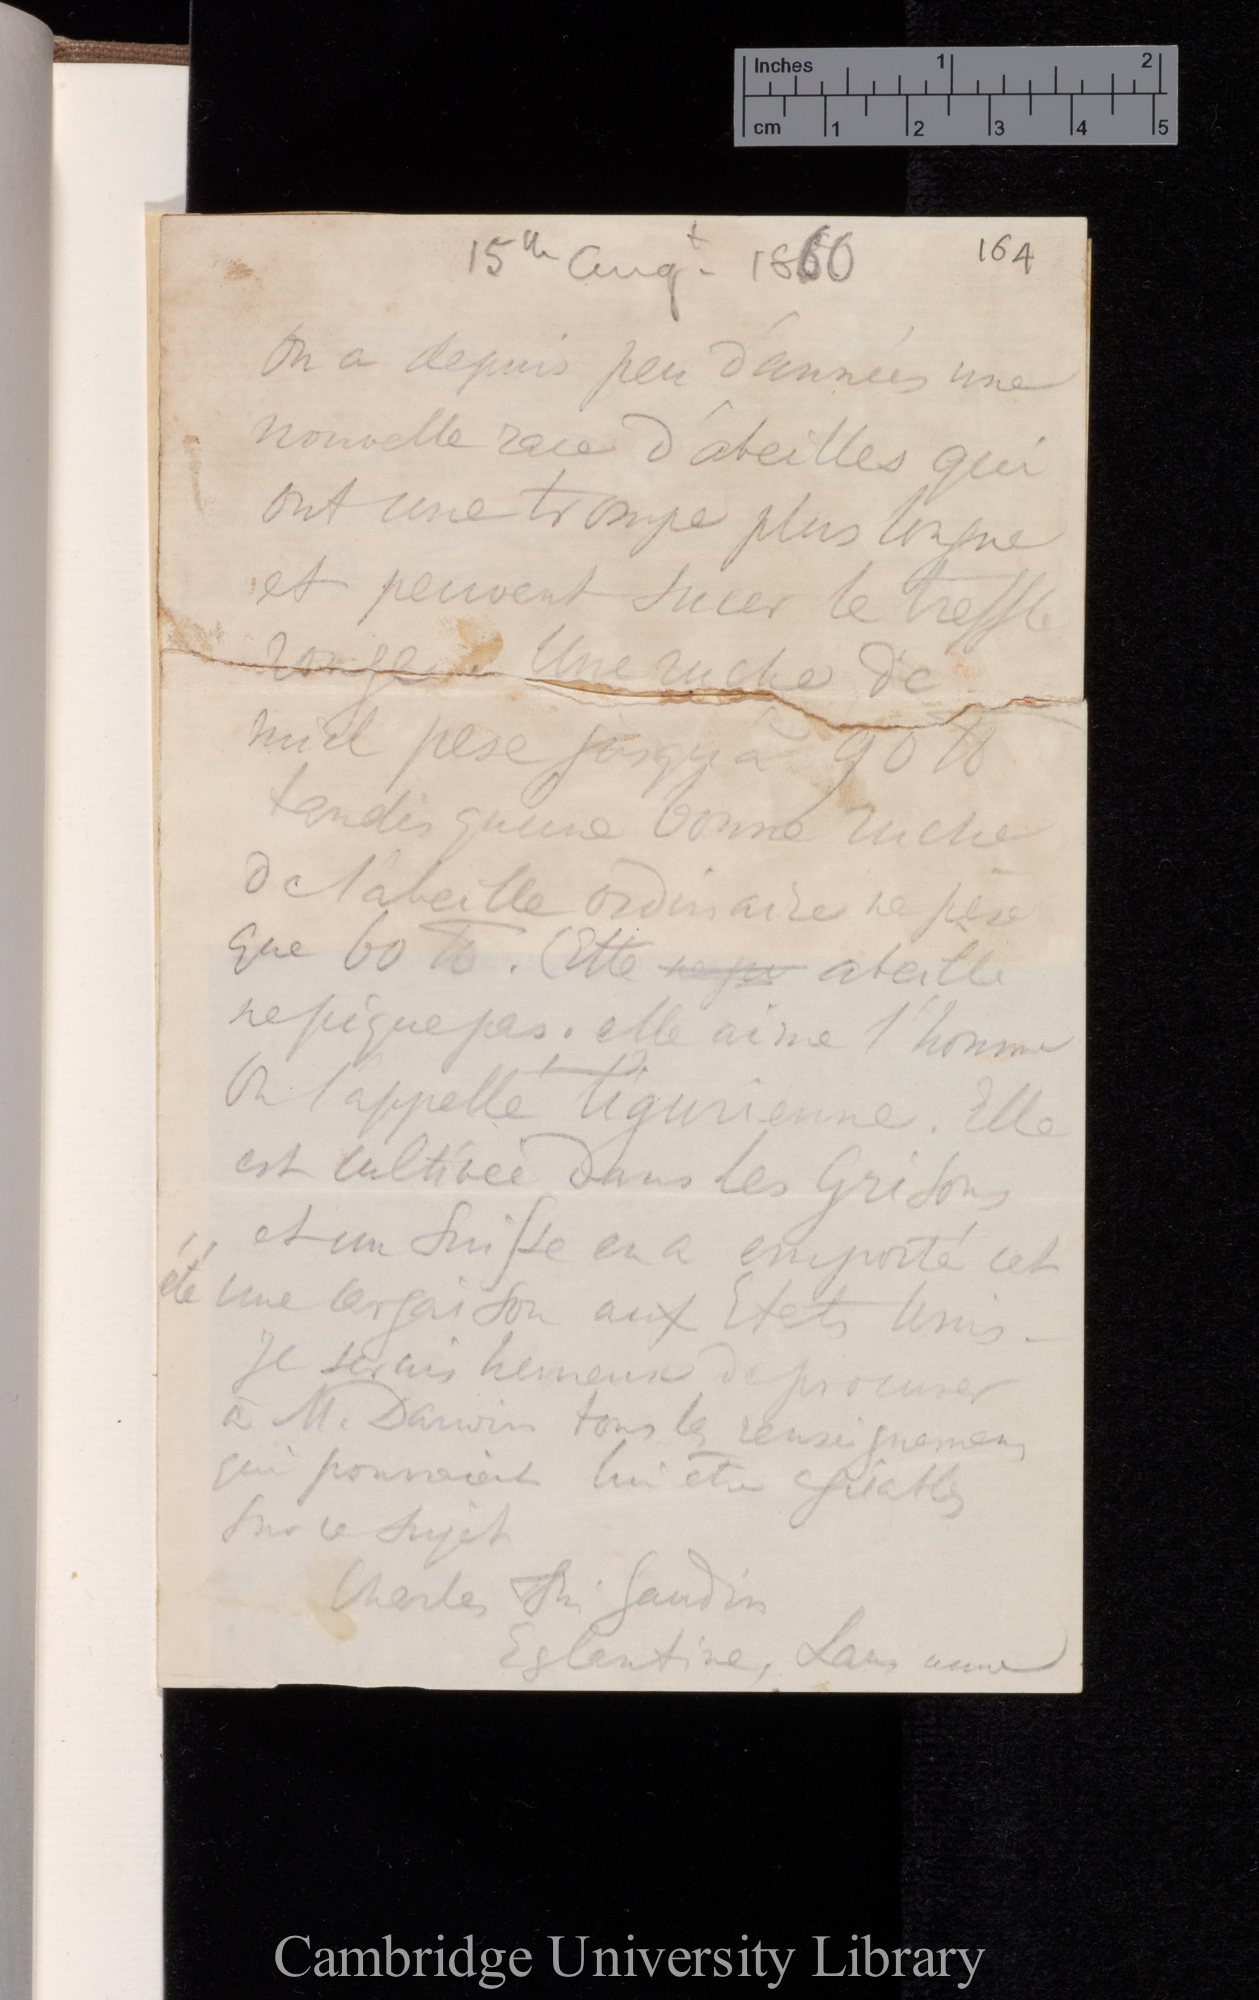 Inches 1 2
cm 1 2 3 4 5
15th Augt. 1860
164
On a depuis peu d'années une
nouvelle race d'abeilles qui
ont une trompe plus longue
et peuvent sucer le treffle
rouge. Une ruche de
miel pese jusqu'à 90 lb
tandis qu'une bonne ruche
de l'abeille ordinaire ne pèse
que 60 lb. Cette abeille
ne pique pas. elle aime l'homme
On l'appelle ligurienne. Elle
est cultivée dans les Grisons
et un Suisse en a emporté cet
été une cargaison aux Etats Unis –
Je serais heureux de procurer
à M. Darwin tous les renseignemens
qui pourraient lui etre agréables
sur ce sujet
Charles Th. Gaudin
Eglantine, Lausanne
Cambridge University Library